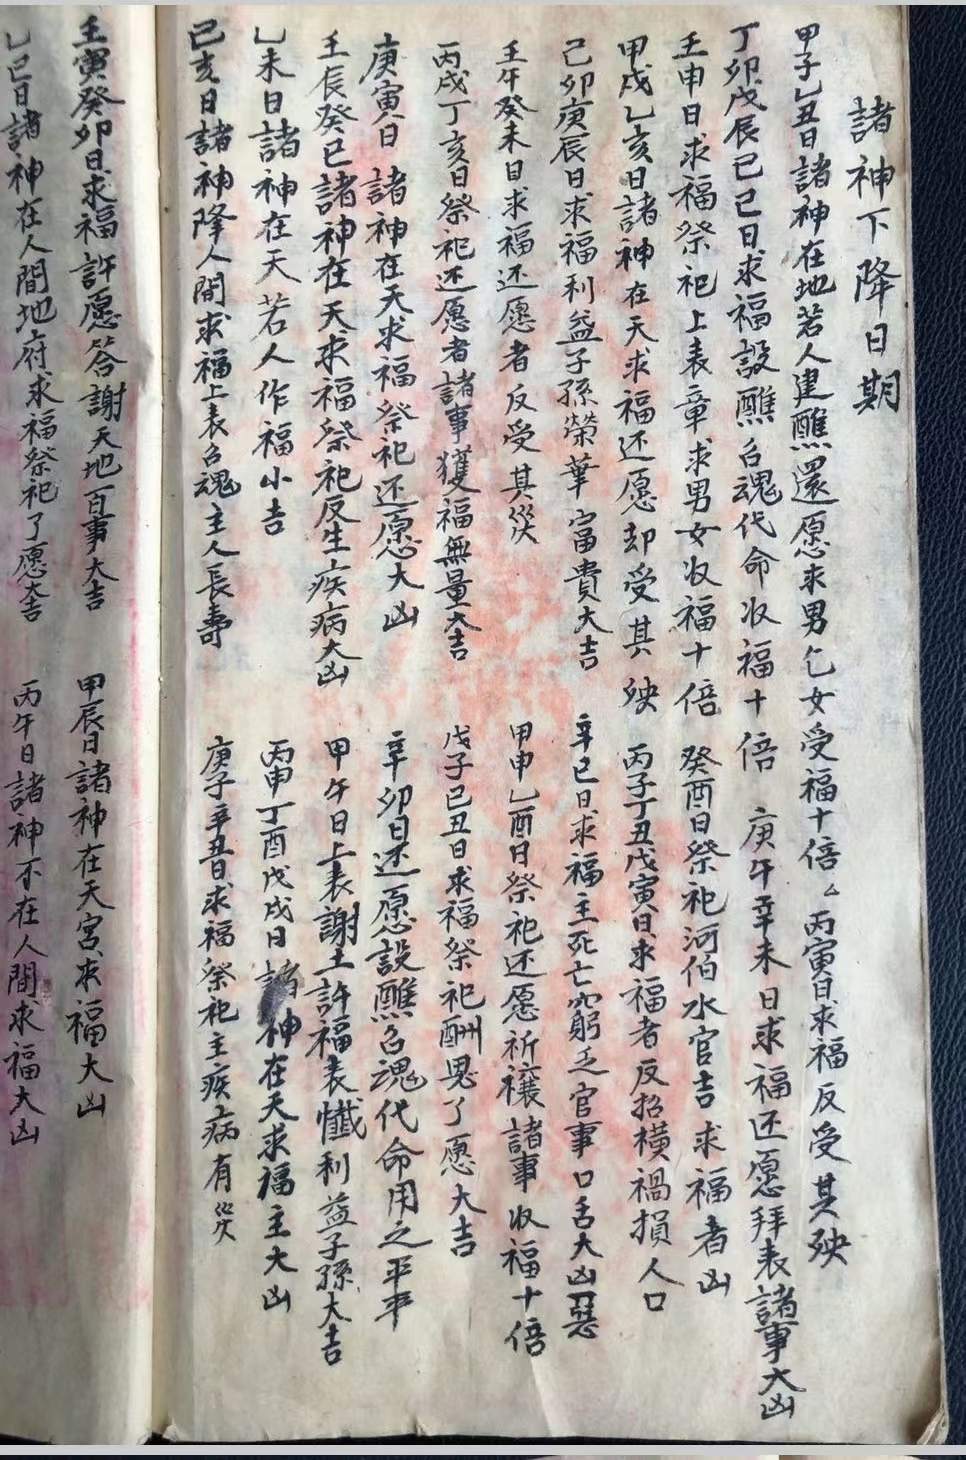 諸神下降日期
甲子乙丑日諸神在地若人建醮還愿求男乞女受福十倍 丙寅日求福反受其殃
丁卯戊辰己巳日求福設醮召魂代命收福十倍 庚午辛未日求福还愿拜表諸事大凶
壬申日求福祭祀上表章求男女收福十倍 癸酉日祭祀河伯水官吉求福者凶
甲戌乙亥日諸神在天求福还愿却受其殃 丙子丁丑戊寅日求福者反招橫禍損人口
己卯庚辰日求福利益子孫榮華富貴大吉 辛巳日求福主死亡窮乏官事口舌大凶惡
壬午癸未日求福还愿者反受其災 甲申乙酉日祭祀还愿祈禳諸事收福十倍
丙戌丁亥日祭祀还愿者諸事獲福無量大吉 戊子己丑日求福祭祀酬恩了愿大吉
庚寅日諸神在天求福祭祀还愿大凶 辛卯日还愿設醮召魂代命用之平平
壬辰癸巳諸神在天求福祭祀反生疾病大凶 甲午日上表謝土許福表懺利益子孫大吉
乙未日諸神在天若人作福小吉 丙申丁酉戊戌日諸神在天求福主大凶
己亥日諸神降人間求福上表召魂主人長壽 庚子辛丑日求福祭祀主疾病有災
壬寅癸卯日求福許愿答謝天地百事大吉 甲辰日諸神在天宮求福大凶
乙巳日諸神在人間地府求福祭祀了愿大吉 丙午日諸神不在人間求福大凶